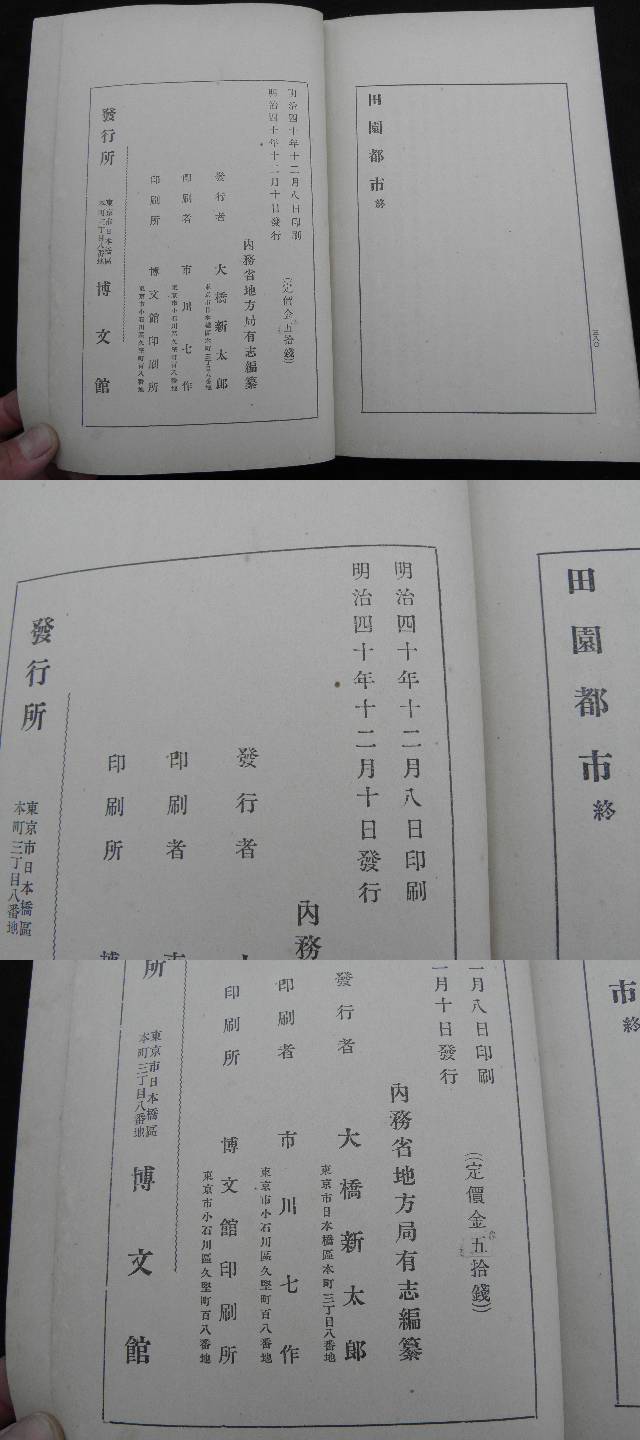 田園都市終
三八〇
明治四十年十二月八日印刷
明治四十年十二月十日發行
(定價金五拾錢)
內務省地方局有志編纂
發行者 大橋新太郎
東京市日本橋區本町三丁目八番地
印刷者 市川七作
東京市小石川區久堅町百八番地
印刷所 博文館印刷所
東京市小石川區久堅町百八番地
發行所 東京市日本橋區本町三丁目八番地 博文館
田園都市終
明治四十年十二月八日印刷
明治四十年十二月十日發行
內務
發行者
印刷者
印刷所
發行所
東京市日本橋區
本町三丁目八番地
市終
月八日印刷
月十日發行
(定價金五拾錢)
內務省地方局有志編纂
發行者 大橋新太郎
東京市日本橋區本町三丁目八番地
印刷者 市川七作
東京市小石川區久堅町百八番地
印刷所 博文館印刷所
東京市小石川區久堅町百八番地
所 東京市日本橋區本町三丁目八番地 博文館